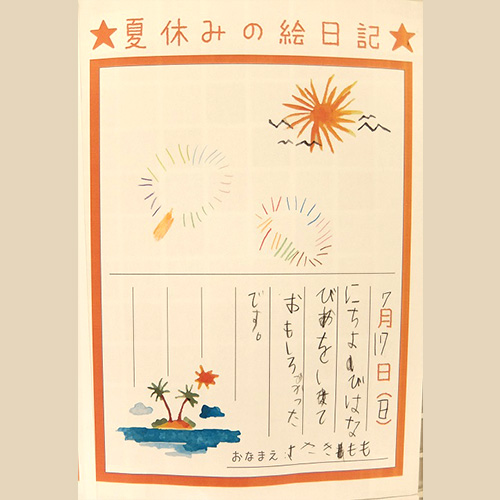 ★夏休みの絵日記★
7月17日(日)
にちよびはな
びおをしまて
おもしろかった
です。
おなまえ すたきもも